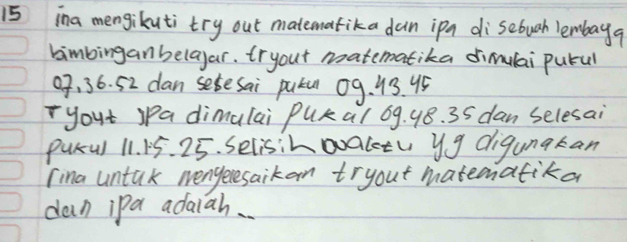 15 ina mengikuti try out matematika dan ipa di sebuah lembaga
bimbingan belajar. tryout matematika dimulai pukul
07.36.52 dan selesai pukul 09.43.45
Tryout ipa dimulai pukal 09.48.35 dan selesai
pukul 11.15.25. selisih waktu yg digunakan
rina untuk menyelesaikan tryout matematika
dan ipa adalah...